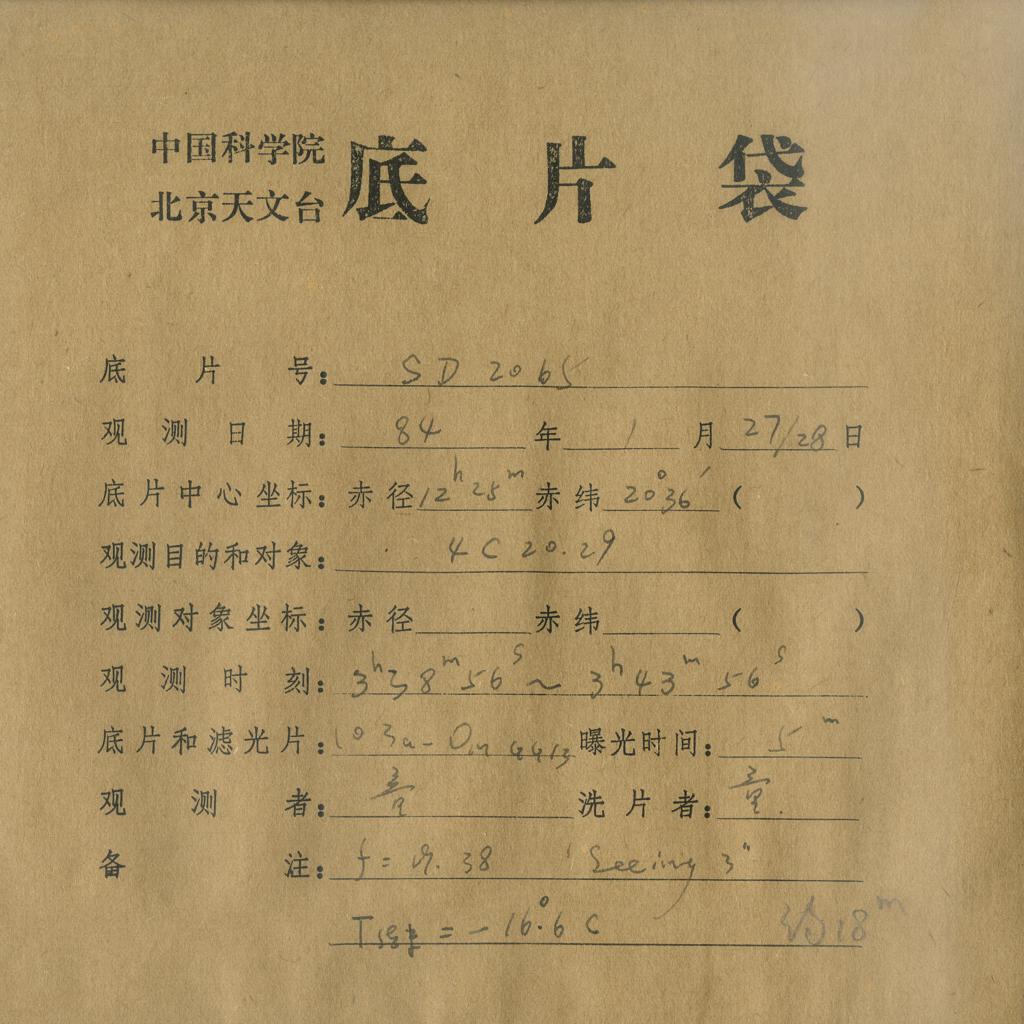 中国科学院
北京天文台
底片袋
底片号: SD 2065
观测日期: 84 年 1 月 27/28 日
底片中心坐标: 赤径 12ʰ25ᵐ 赤纬 20°36′ ( )
观测目的和对象: 4C 20.29
观测对象坐标: 赤径 赤纬 ( )
观测时刻: 3ʰ38ᵐ56ˢ ~ 3ʰ43ᵐ56ˢ
底片和滤光片: 103a-O 曝光时间: 5ᵐ
观测者: 洗片者:
备注: f = 38 Seeing 3″
T = -16°.6 C 约18ᵐ